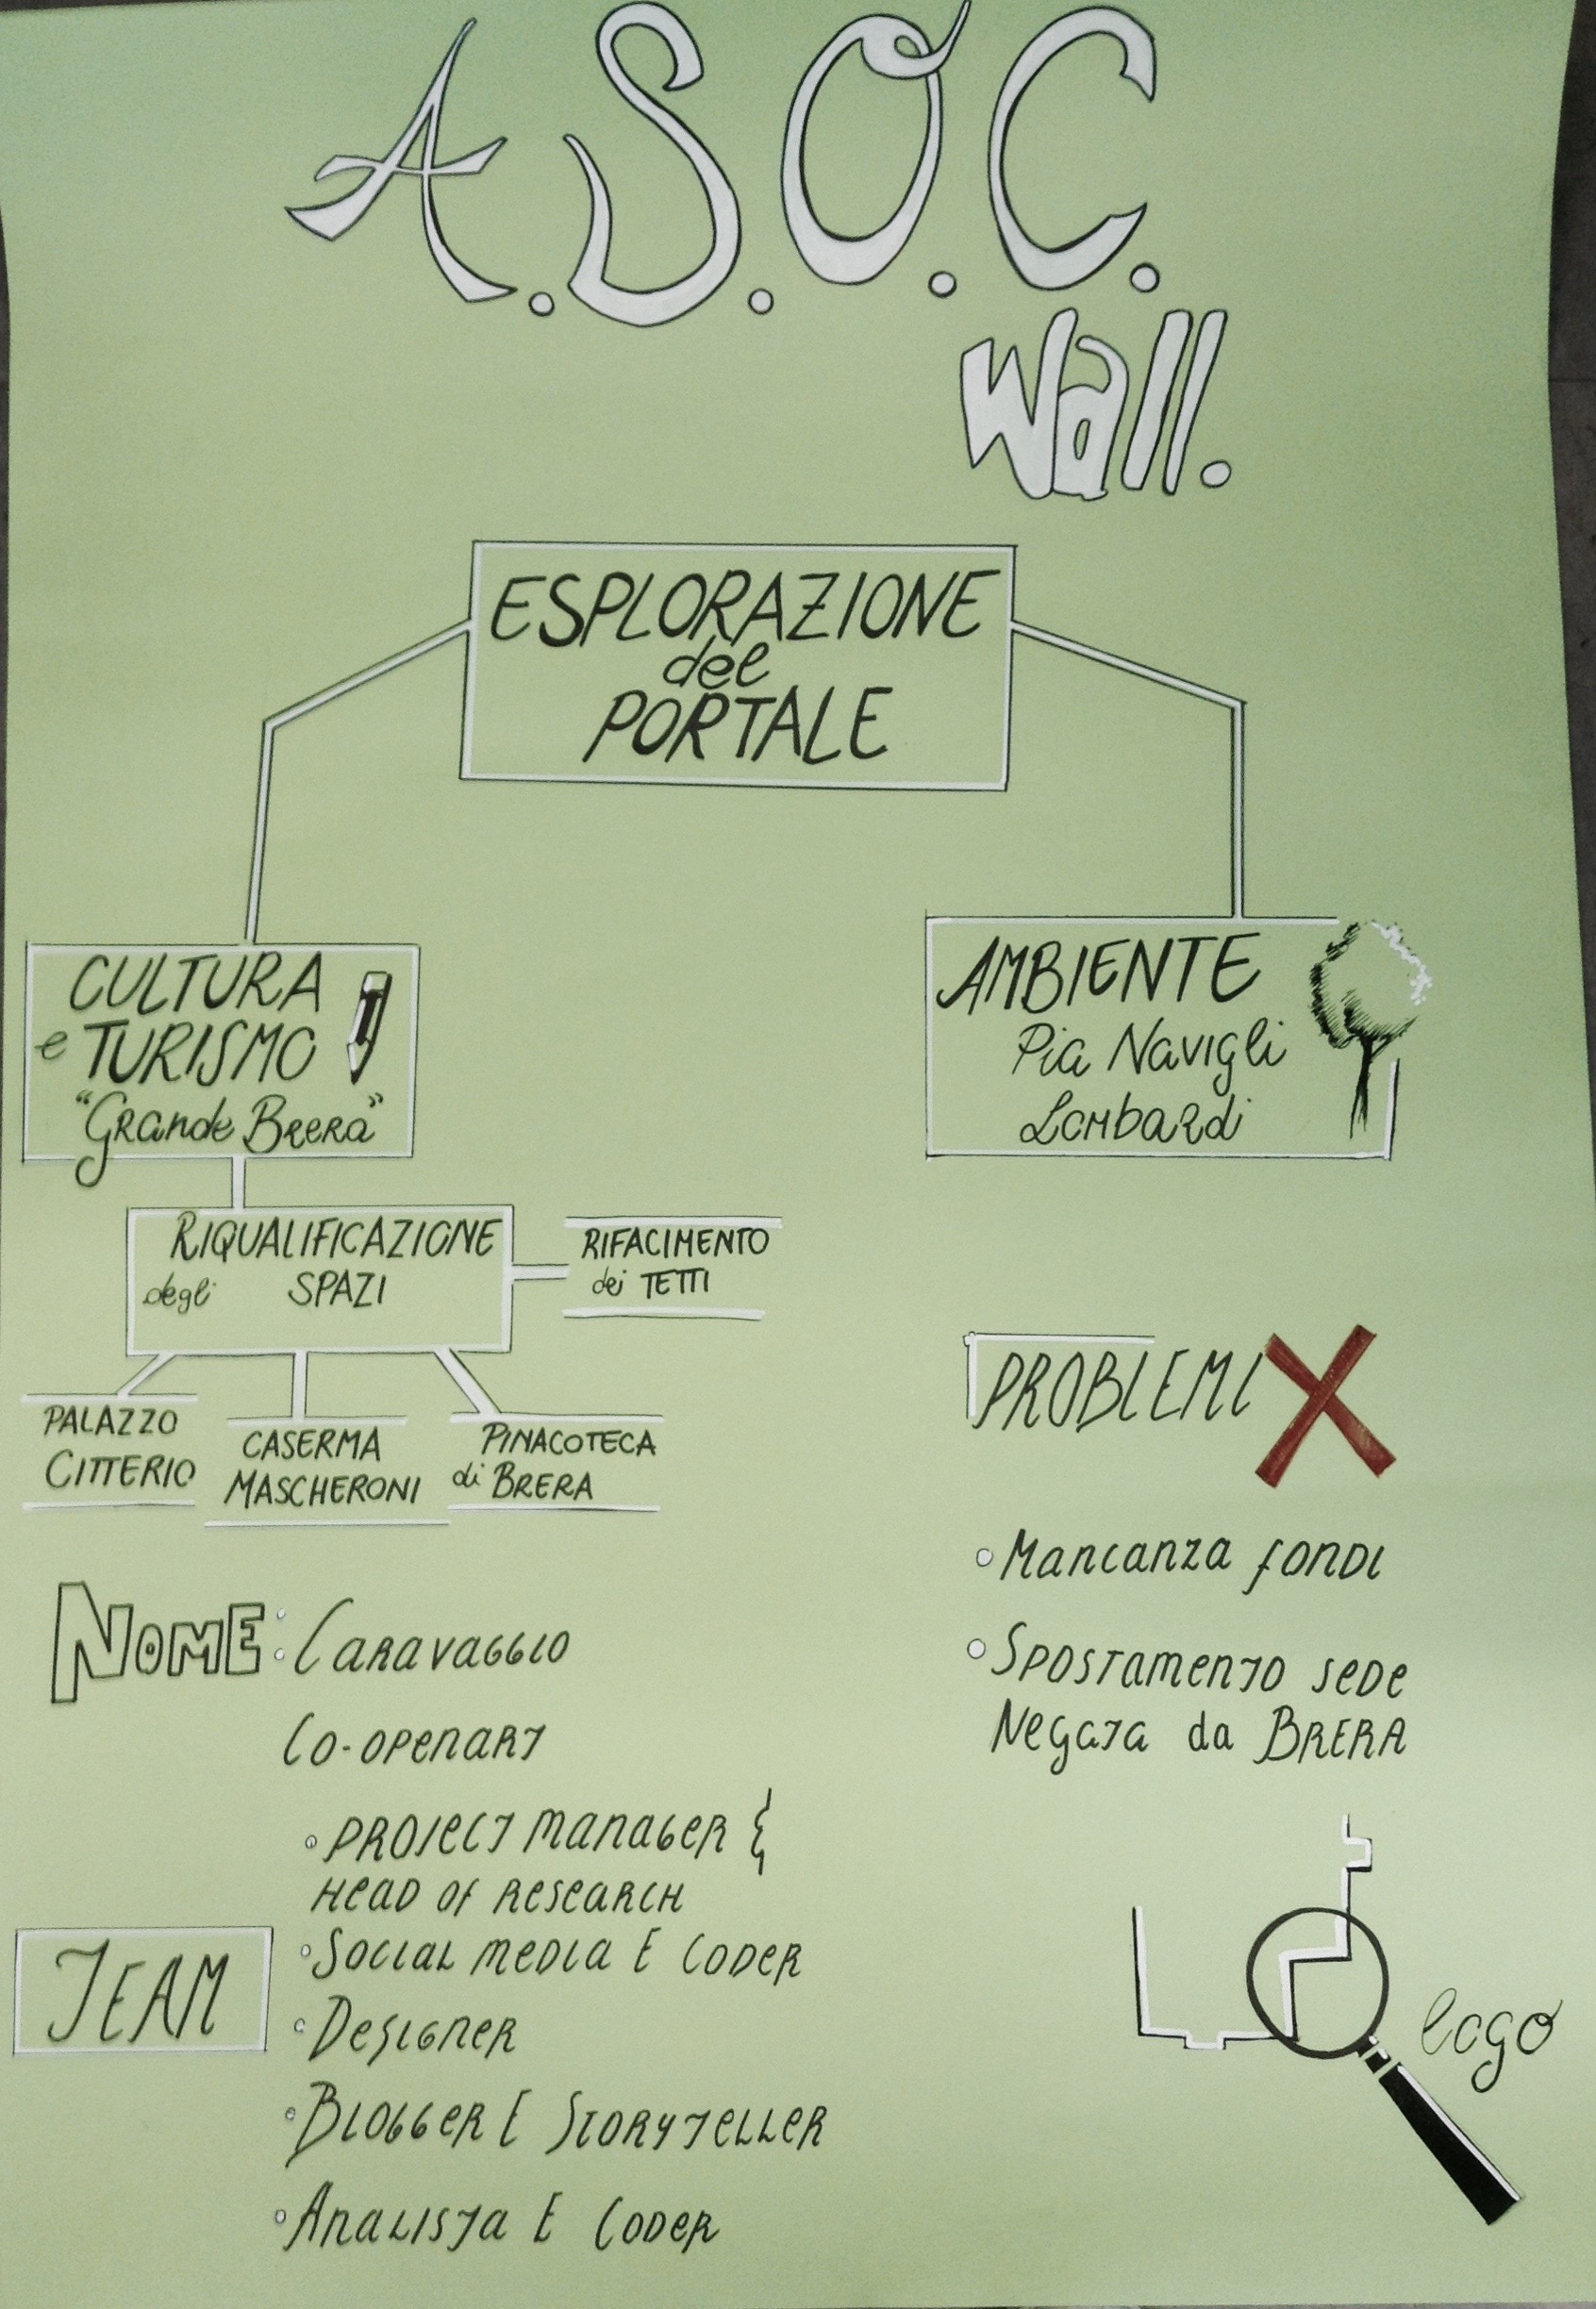 A.S.O.C.
Wall.
ESPLORAZIONE
del
PORTALE
CULTURA
e TURISMO
"Grande Brera"
AMBIENTE
Pia Navigli
Lombardi
RIQUALIFICAZIONE
degli SPAZI
RIFACIMENTO
dei TETTI
PALAZZO
CITTERIO
CASERMA
MASCHERONI
PINACOTECA
di BRERA
PROBLEMI
Mancanza fondi
Spostamento sede
Negata da BRERA
NOME: Caravaggio
Co-openart
TEAM
• Project manager &
Head of research
• Social media E Coder
• Designer
• Blogger E Storyteller
• Analista E Coder
logo